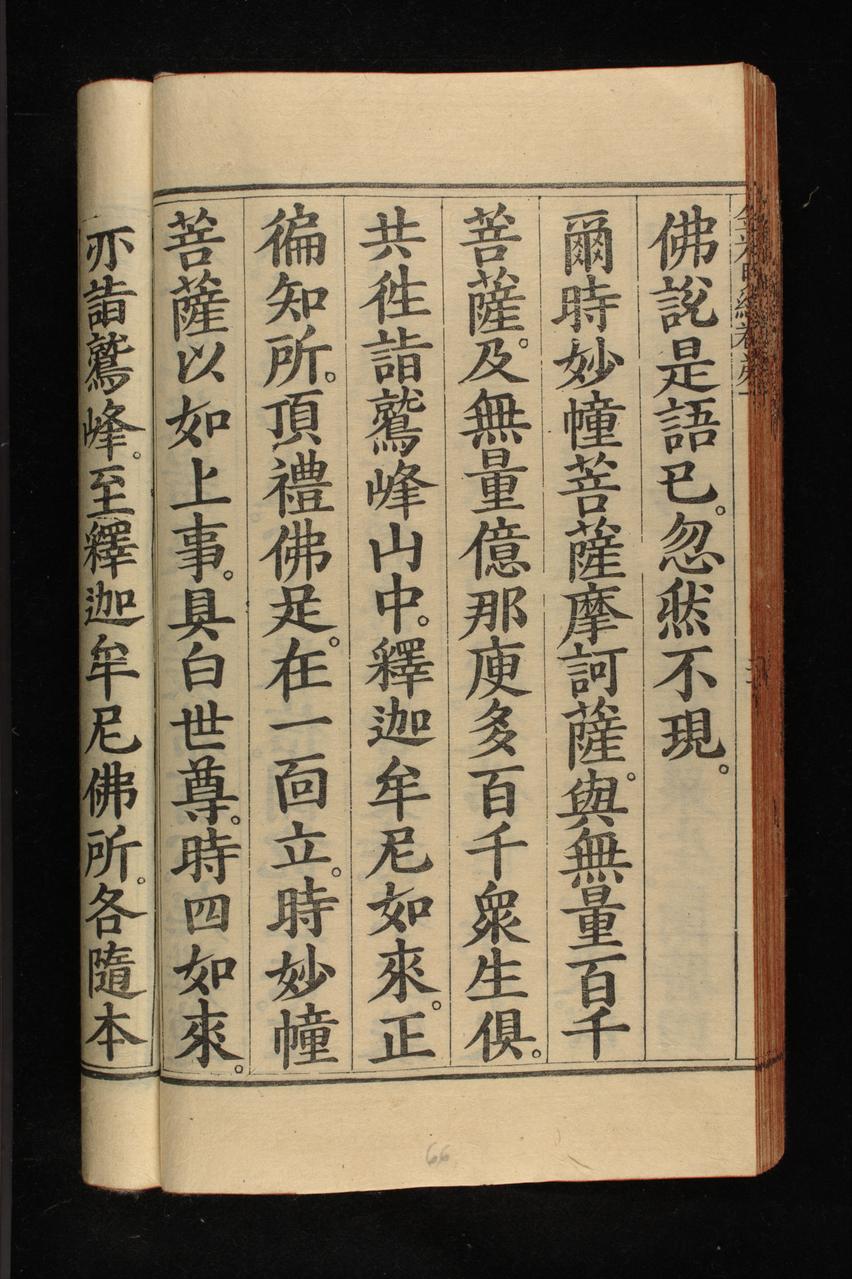 佛說是語已。忽然不現。
爾時妙幢菩薩摩訶薩。與無量百千
菩薩。及無量億那庾多百千眾生俱。
共徃詣鷲峰山中。釋迦牟尼如來。正
徧知所。頂禮佛足。在一面立。時妙幢
菩薩以如上事。具白世尊。時四如來。
亦詣鷲峰。至釋迦牟尼佛所。各隨本
66